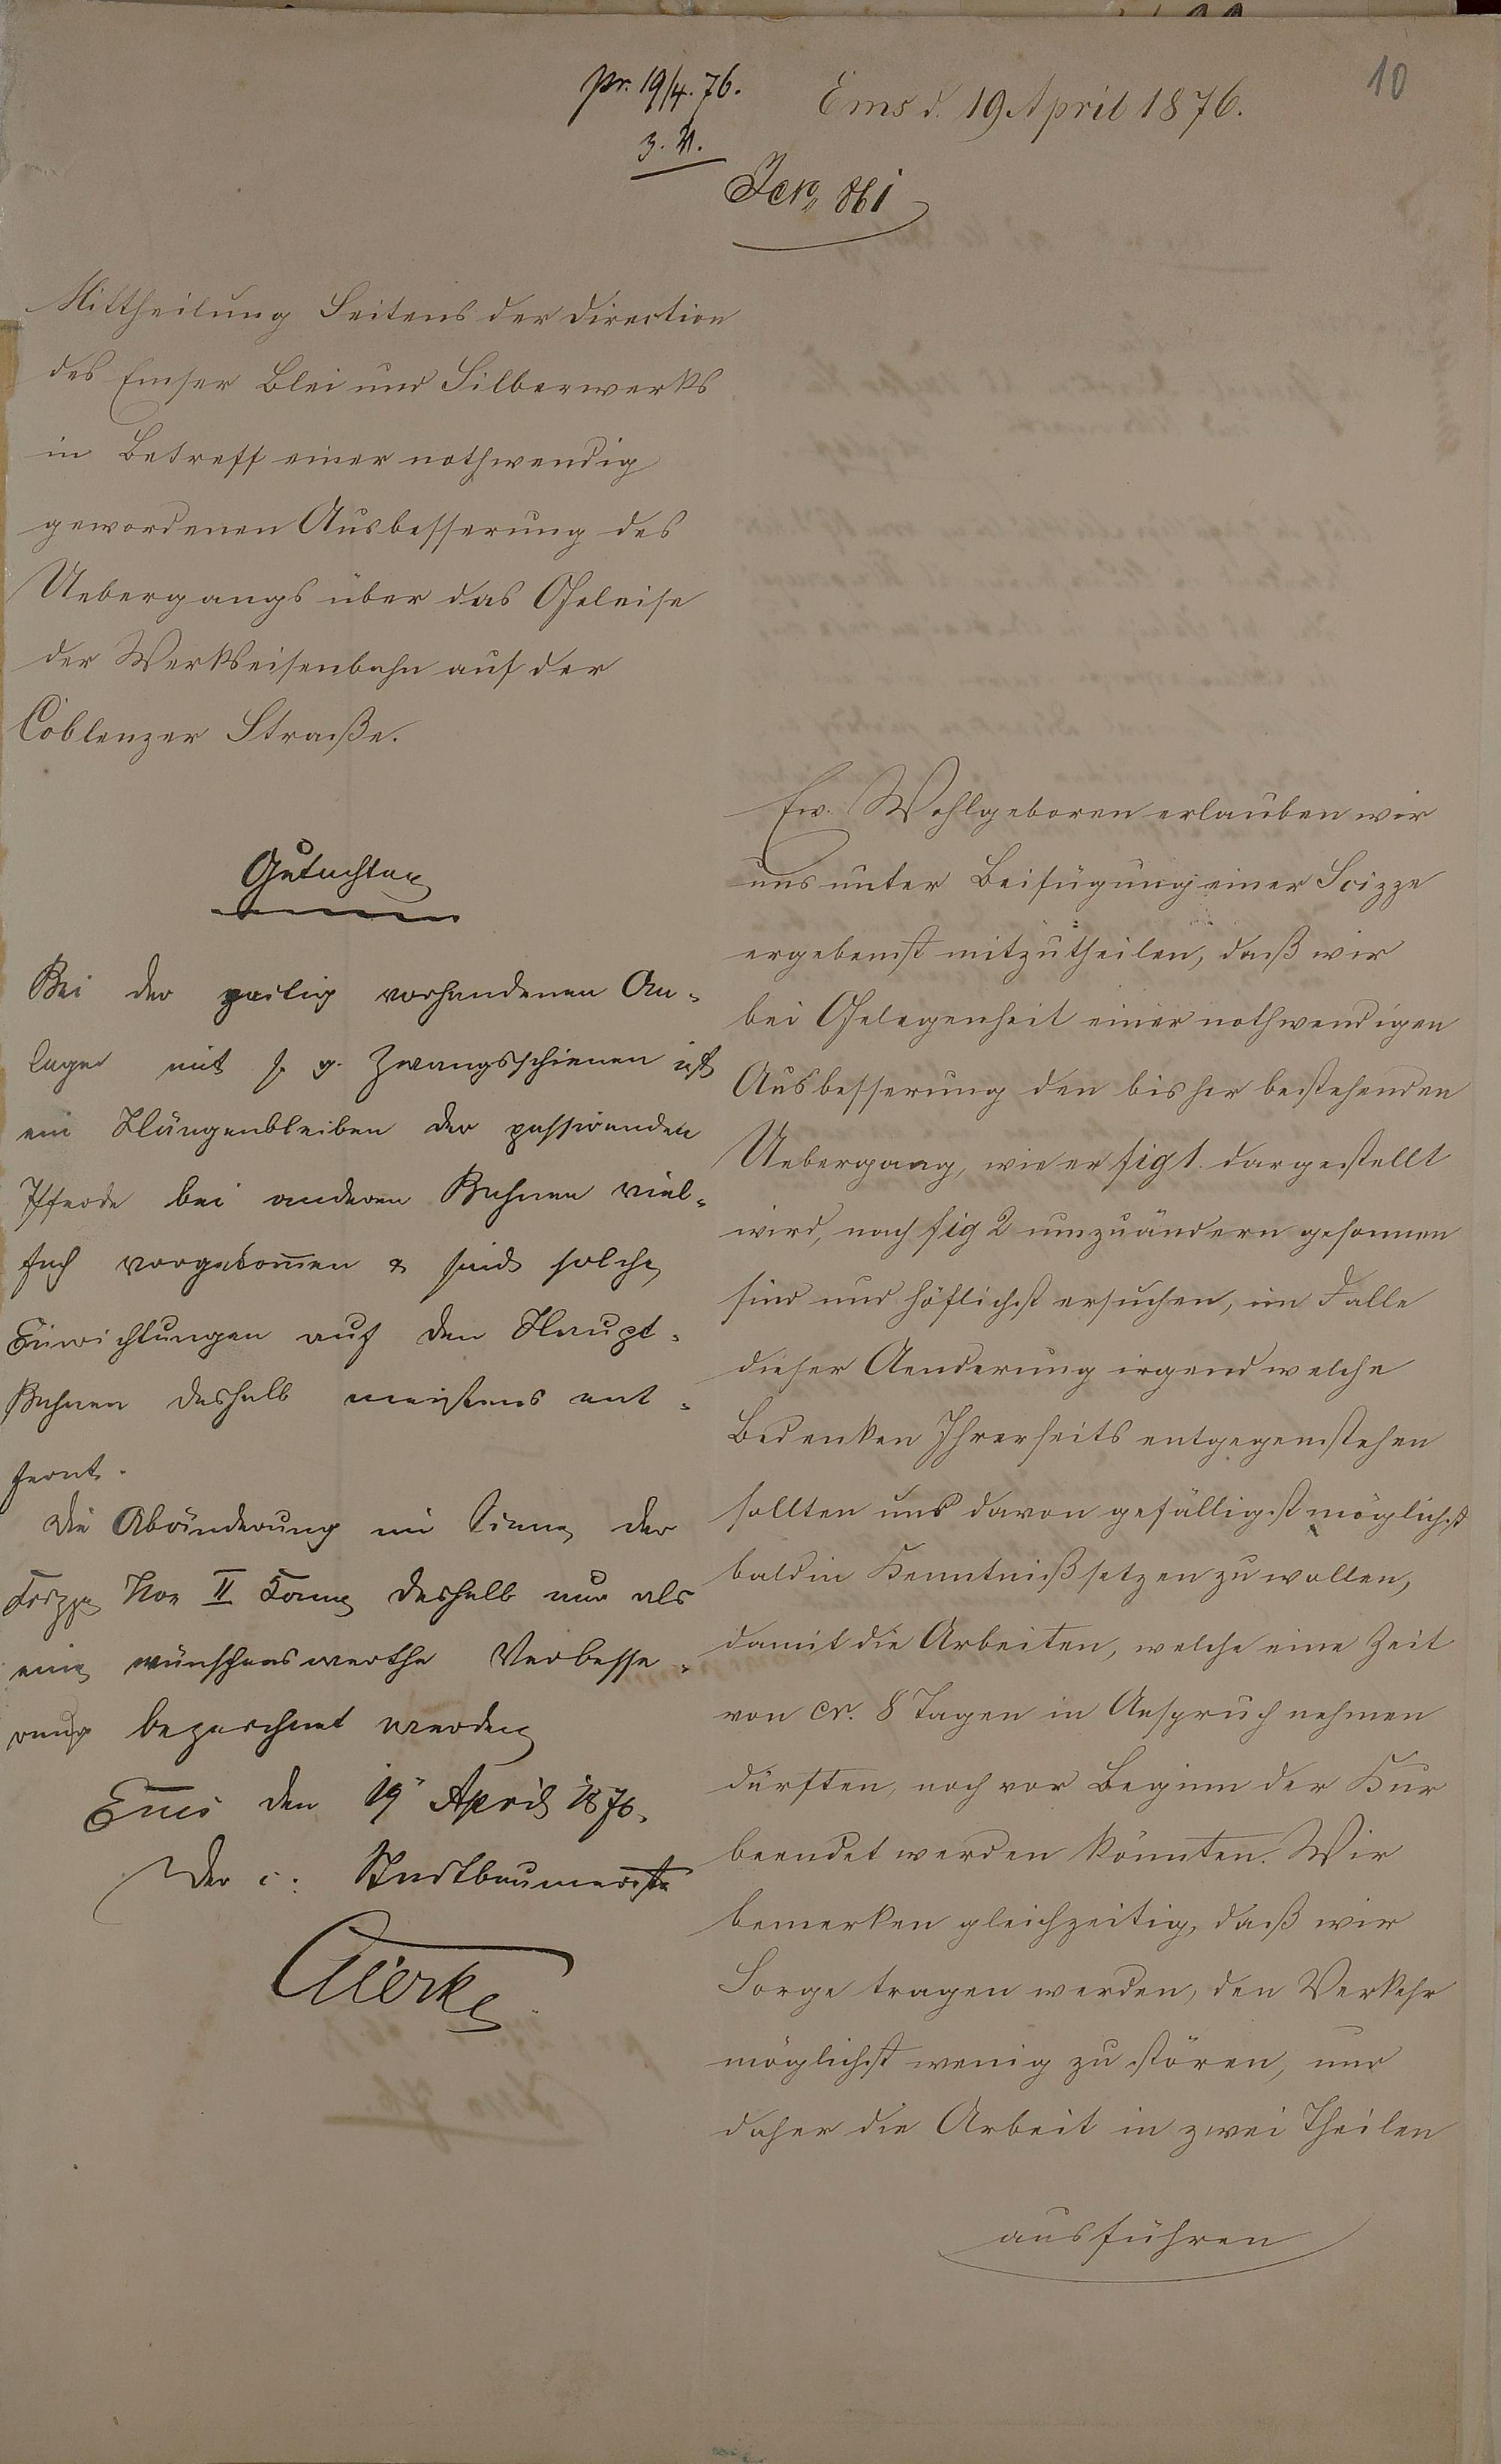 10
pr. 19/4. 76.
Ems d. 19 April 1876.
Mittheilung Seitens der Direction
des Emser Blei und Silberwerks
in Betreff einer nothwendig
gewordenen Ausbesserung des
Uebergangs über das Geleise
der Werkseisenbahn auf der
Coblenzer Straße.
Gutachten
Bei der zeitig vorhandenen An-
lage mit s. g. Zwangsschienen ist
ein Hängenbleiben der passirenden
Pferde bei anderen Bahnen viel-
fach vorgekom̄en & sind solche
Einrichtungen auf den Haupt-
Bahnen deshalb meistens ent-
fernt.
Die Abänderung im Sinne der
Scizze Nro II kann deshalb nur als
eine wünschenswerthe Verbesse-
rung bezeichnet werden
Ems den 19 April 1876.
Der c. Stadtbaumeister
Ew. Wohlgeboren erlauben wir
uns unter Beifügung einer Scizze
ergebenst mitzutheilen, daß wir
bei Gelegenheit einer nothwendigen
Ausbesserung den bisher bestehenden
Uebergang, wie er fig 1. dargestellt
wird, nach fig 2 umzuändern gesonnen
sind und höflichst ersuchen, im Falle
dieser Aenderung irgend welche
Bedenken Ihrerseits entgegenstehen
sollten uns davon gefälligst möglichst
bald in Kenntniß setzen zu wollen,
damit die Arbeiten, welche eine Zeit
von cr. 8 Tagen in Anspruch nehmen
dürften, noch vor Beginn der Kur
beendet werden könnten. Wir
bemerken gleichzeitig, daß wir
Sorge tragen werden, den Verkehr
möglichst wenig zu stören, und
daher die Arbeit in zwei Theilen
ausführen